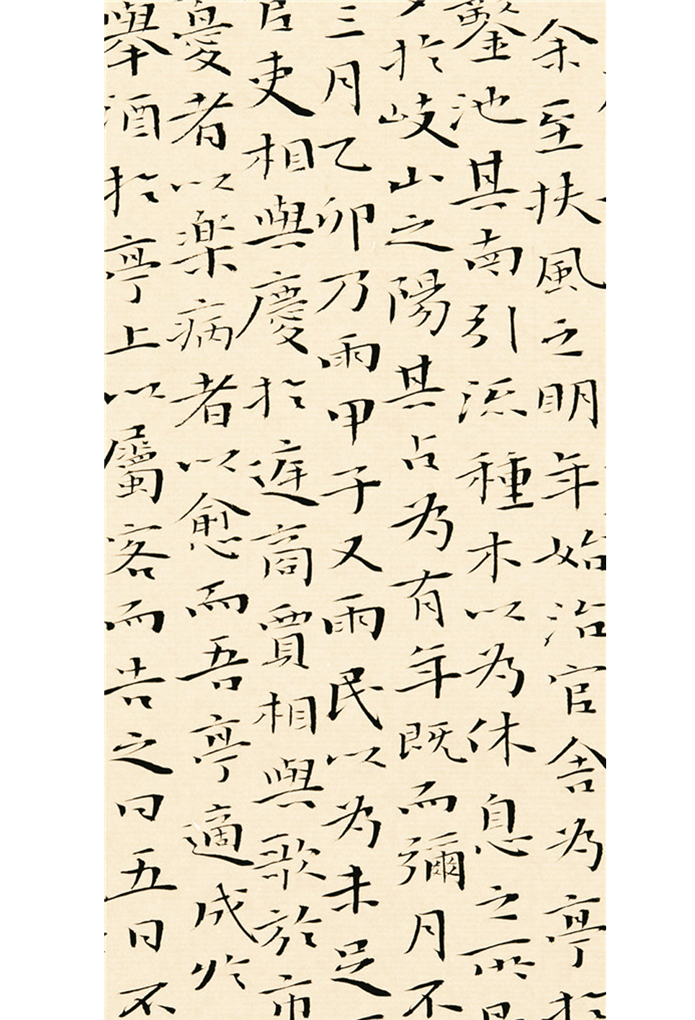 余至扶風之明年始治官舍為亭於
鑿池其南引流種木以為休息之所
於岐山之陽其占為有年既而彌月不
三月乙卯乃雨甲子又雨民以為未足
吏相與慶於庭商賈相與歌於市
憂者以楽病者以愈而吾亭適成於
舉酒於亭上以屬客而告之曰五日不